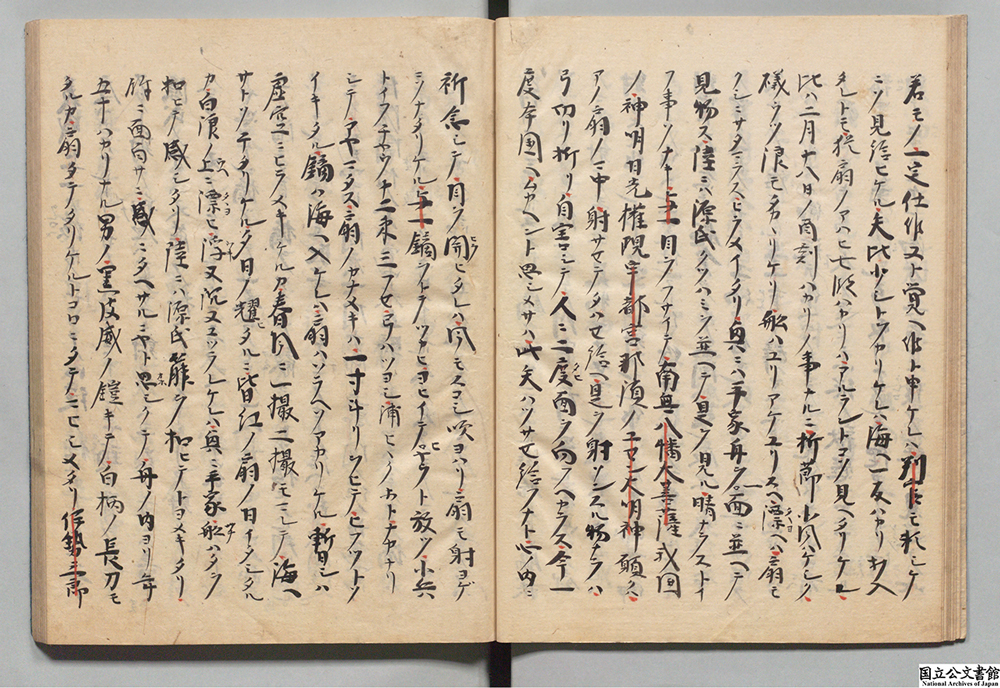 若モノ一定仕候ヌト覚ヘ候ト申ケレハ判官モ
ニソ見給ヒケル矢比少シトヲカリケレハ海ヘ一反ハカリ打入
タレトモ猶扇ノアハヒ七段ハカリハアルラントコソ見ヘタリケレ
比ハ二月十八日ノ酉刻ハカリノ事ナルニ折節北風ハケシク
礒ウツ浪モ高カリケリ船ハユリアケユリスヘ漂ヘハ扇モ
クシニサタマラスヒラメイタリ奥ニハ平家舟ヲ一面ニ並ヘテ
見物ス陸ニハ源氏クツハミヲ並ヘテ是ヲ見ル晴ナラスト
フ事ソナキ与一目ヲフサイテ南無八幡大菩薩我国
ノ神明日光権現宇都宮那須ノユセン大明神願クハ
アノ扇ノマ中射サセテタハせ給ヘ是ヲ射ソンスル物ナラハ
弓切リ折リ自害シテ人ニ二度面ヲ向フヘカラス今一
度本国ヘムカヘント思シメサハ此矢ハツサせ給フナト心ノ内ニ
祈念シテ目ヲ開ヒタレハ風モスコシ吹ヨハリ扇モ射ヨケ
ニソナタリケル与一鏑ヲトテツカヒヨヒイテヒヤウト放ツ小兵
トイフチヤウ十二束三フせ弓ハツヨシ浦ヒヽクホトナカナリ
シテアヤマタス扇ノカナメキハ一寸斗リヲヒテヒフツトソ
イキタル鏑ハ海ヘ入ケレハ扇ハソラヘソアカリケル暫シハ
虚空ニヒラメキケルカ春風ニ一揉二揉モマレテ海ヘ
サトソチタリケル夕日ノ耀タルニ皆紅ノ扇ノ日イタシタル
カ白浪ノ上ニ漂ヒ浮ヌ沈ヌユラレケレハ奥ニ平家船ハタヲ
扣ヒテ感シタリ陸ニハ源氏箙ヲ扣ヒテトヨメキタリ
余ニ面白サニ感ニタヘサルニヤト思シクテ舟ノ内ヨリ年
五十ハカリナル男ノ黒皮威ノ鎧キテ白柄ノ長刀モ
タルカ扇タテタリケルトコロニタテ
伊勢三郎
国立公文書館
National Archives of Japan